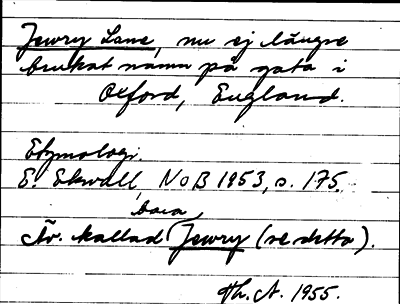 Jewry Lane, nu ej längre
brukat namn på gata i
Oxford, England.
Etymologi.
E. Ekwall, NoB 1953, s. 175.
bara
Äv. kallad Jewry (se detta).
Th. A. 1955.